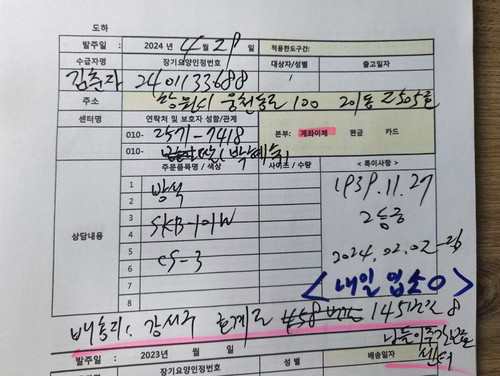 도하
발주일 : 2024 년 4 월 29 적용한도구간:
수급자명 장기요양인정번호 대상자/성별 출고일자
김춘자 2401133688 /
주소 창원시 웅천동로 100 201동 2505호
센터명 연락처 및 보호자 성함/관계
010- 2571-7418 본부: 계좌이체 현금 카드
010- (박혜숙)
주문품목명 / 색상 사이즈 / 수량 < 특이사항 >
1 방석 1939.11.27
2
3 SKB-101W 2등급
4
5 CS-3 2024.02.02-26
6
7 <내일 업소O>
8
상담내용
배송지: 강서구 145번길 8
센터
발주일 : 2023년 월 일 배송일자
장기요양인정번호 성 별